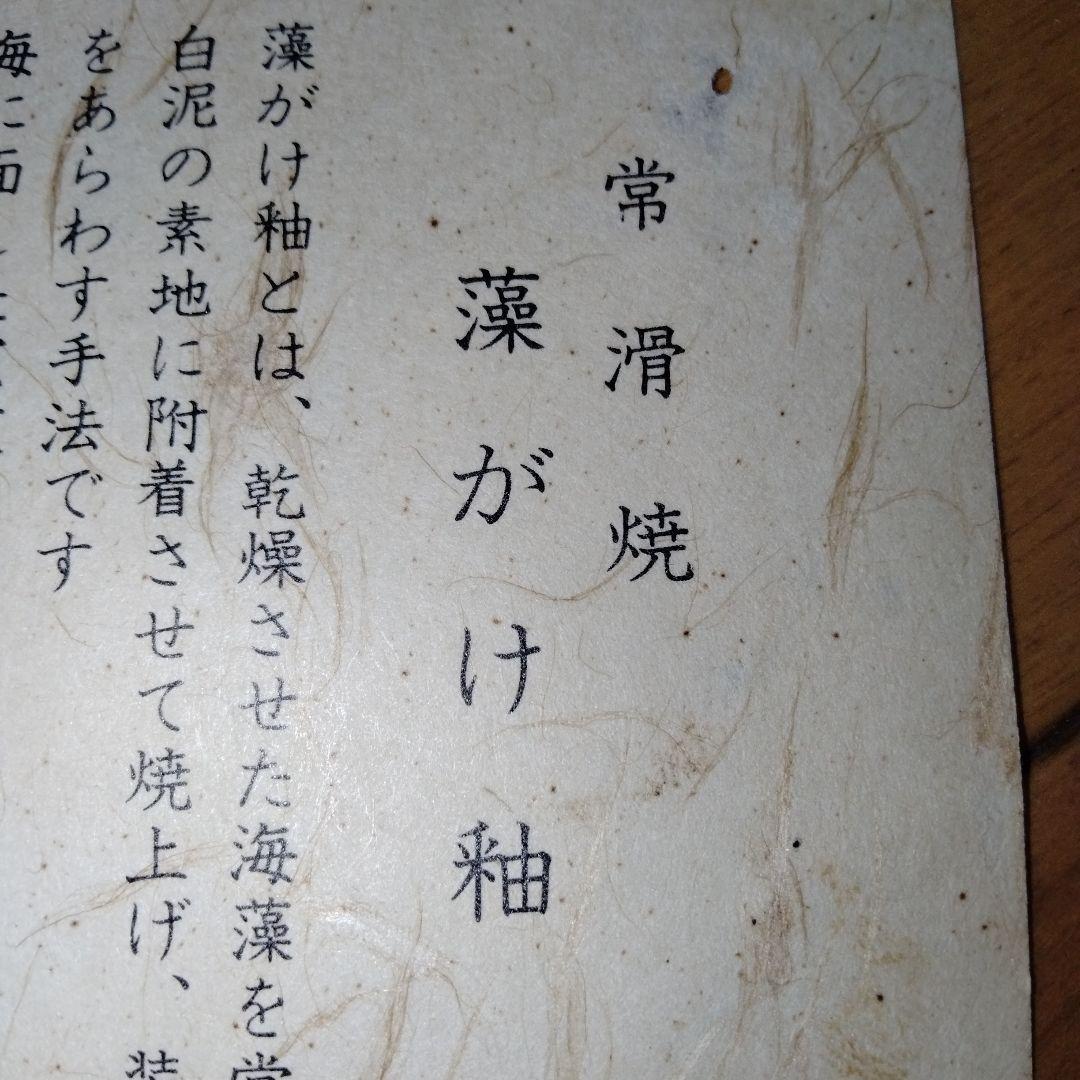 常滑焼
藻がけ釉
藻がけ釉とは、乾燥させた海藻を常
白泥の素地に附着させて焼上げ、装
をあらわす手法です
海に面